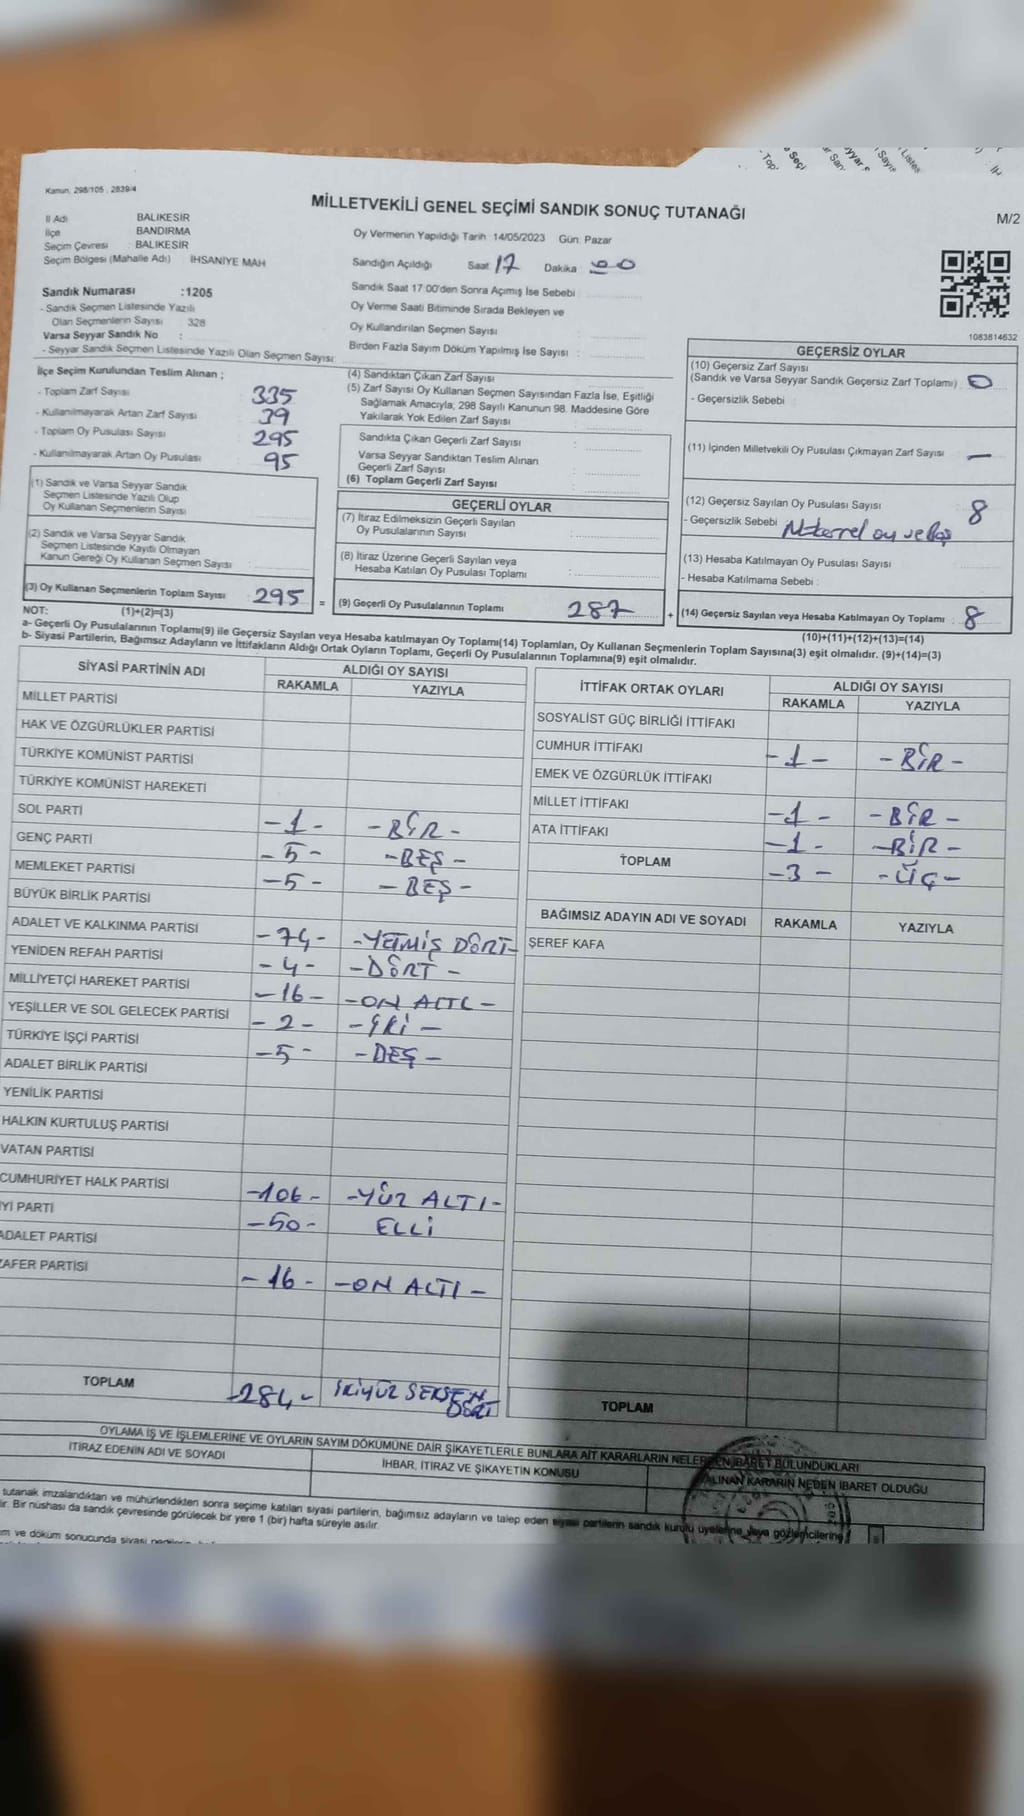 Kanun, 298/105 , 2839/4
MİLLETVEKİLİ GENEL SEÇİMİ SANDIK SONUÇ TUTANAĞI
M/2
İl Adı BALIKESİR
İlçe BANDIRMA
Seçim Çevresi : BALIKESİR
Seçim Bölgesi (Mahalle Adı) : İHSANİYE MAH
Oy Vermenin Yapıldığı Tarih :14/05/2023 Gün: Pazar
Sandığın Açıldığı Saat 17 Dakika 00
Sandık Numarası :1205
- Sandık Seçmen Listesinde Yazılı
Olan Seçmenlerin Sayısı : 328
Varsa Seyyar Sandık No :
- Seyyar Sandık Seçmen Listesinde Yazılı Olan Seçmen Sayısı:
Sandık Saat 17:00'den Sonra Açımış İse Sebebi :
Oy Verme Saati Bitiminde Sırada Bekleyen ve
Oy Kullandırılan Seçmen Sayısı :
Birden Fazla Sayım Döküm Yapılmış İse Sayısı :
1083814632
İlçe Seçim Kurulundan Teslim Alınan ;
- Toplam Zarf Sayısı : 335
- Kullanılmayarak Artan Zarf Sayısı : 39
- Toplam Oy Pusulası Sayısı : 295
- Kullanılmayarak Artan Oy Pusulası : 95
(1) Sandık ve Varsa Seyyar Sandık
Seçmen Listesinde Yazılı Olup
Oy Kullanan Seçmenlerin Sayısı :
(2) Sandık ve Varsa Seyyar Sandık
Seçmen Listesinde Kayıtlı Olmayan
Kanun Gereği Oy Kullanan Seçmen Sayısı :
(3) Oy Kullanan Seçmenlerin Toplam Sayısı : 295 =
(1)+(2)=(3)
(4) Sandıktan Çıkan Zarf Sayısı :
(5) Zarf Sayısı Oy Kullanan Seçmen Sayısından Fazla İse, Eşitliği
Sağlamak Amacıyla, 298 Sayılı Kanunun 98. Maddesine Göre
Yakılarak Yok Edilen Zarf Sayısı :
Sandıkta Çıkan Geçerli Zarf Sayısı :
Varsa Seyyar Sandıktan Teslim Alınan
Geçerli Zarf Sayısı :
(6) Toplam Geçerli Zarf Sayısı :
GEÇERLİ OYLAR
(7) İtiraz Edilmeksizin Geçerli Sayılan
Oy Pusulalarının Sayısı :
(8) İtiraz Üzerine Geçerli Sayılan veya
Hesaba Katılan Oy Pusulası Toplamı :
(9) Geçerli Oy Pusulalarının Toplamı : 287 +
GEÇERSİZ OYLAR
(10) Geçersiz Zarf Sayısı
(Sandık ve Varsa Seyyar Sandık Geçersiz Zarf Toplamı) : 0
- Geçersizlik Sebebi :
(11) İçinden Milletvekili Oy Pusulası Çıkmayan Zarf Sayısı : —
(12) Geçersiz Sayılan Oy Pusulası Sayısı : 8
- Geçersizlik Sebebi : oy
(13) Hesaba Katılmayan Oy Pusulası Sayısı :
- Hesaba Katılmama Sebebi :
(14) Geçersiz Sayılan veya Hesaba Katılmayan Oy Toplamı : 8
(10)+(11)+(12)+(13)=(14)
NOT:
a- Geçerli Oy Pusulalarının Toplamı(9) ile Geçersiz Sayılan veya Hesaba katılmayan Oy Toplamı(14) Toplamları, Oy Kullanan Seçmenlerin Toplam Sayısına(3) eşit olmalıdır. (9)+(14)=(3)
b- Siyasi Partilerin, Bağımsız Adayların ve İttifakların Aldığı Ortak Oyların Toplamı, Geçerli Oy Pusulalarının Toplamına(9) eşit olmalıdır.
SİYASİ PARTİNİN ADI ALDIĞI OY SAYISI
RAKAMLA YAZIYLA
MİLLET PARTİSİ
HAK VE ÖZGÜRLÜKLER PARTİSİ
TÜRKİYE KOMÜNİST PARTİSİ
TÜRKİYE KOMÜNİST HAREKETİ
SOL PARTİ -1- -BİR-
GENÇ PARTİ -5- -BEŞ-
MEMLEKET PARTİSİ -5- -BEŞ-
BÜYÜK BİRLİK PARTİSİ
ADALET VE KALKINMA PARTİSİ -74- -YETMİŞ DÖRT-
YENİDEN REFAH PARTİSİ -4- -DÖRT-
MİLLİYETÇİ HAREKET PARTİSİ -16- -ON ALTI-
YEŞİLLER VE SOL GELECEK PARTİSİ -2- -İKİ-
TÜRKİYE İŞÇİ PARTİSİ -5- -BEŞ-
ADALET BİRLİK PARTİSİ
YENİLİK PARTİSİ
HALKIN KURTULUŞ PARTİSİ
VATAN PARTİSİ
CUMHURİYET HALK PARTİSİ -106- -YÜZ ALTI-
Yİ PARTİ -50- ELLİ
ADALET PARTİSİ
ZAFER PARTİSİ -16- -ON ALTI-
TOPLAM -284- İKİYÜZ SEKSEN DÖRT
İTTİFAK ORTAK OYLARI ALDIĞI OY SAYISI
RAKAMLA YAZIYLA
SOSYALİST GÜÇ BİRLİĞİ İTTİFAKI
CUMHUR İTTİFAKI -1- -BİR-
EMEK VE ÖZGÜRLÜK İTTİFAKI
MİLLET İTTİFAKI -1- -BİR-
ATA İTTİFAKI -1- -BİR-
TOPLAM -3- -ÜÇ-
BAĞIMSIZ ADAYIN ADI VE SOYADI RAKAMLA YAZIYLA
ŞEREF KAFA
TOPLAM
OYLAMA İŞ VE İŞLEMLERİNE VE OYLARIN SAYIM DÖKÜMÜNE DAİR ŞİKAYETLERLE BUNLARA AİT KARARLARIN NELERDEN İBARET BULUNDUKLARI
İTİRAZ EDENİN ADI VE SOYADI İHBAR, İTİRAZ VE ŞİKAYETİN KONUSU ALINAN KARARIN NEDEN İBARET OLDUĞU
tutanak imzalandıktan ve mühürlendikten sonra seçime katılan siyasi partilerin, bağımsız adayların ve talep eden siyasi partilerin sandık kurulu üyelerine veya gözlemcilerine
ir. Bir nüshası da sandık çevresinde görülecek bir yere 1 (bir) hafta süreyle asılır.
m ve döküm sonucunda siyasi